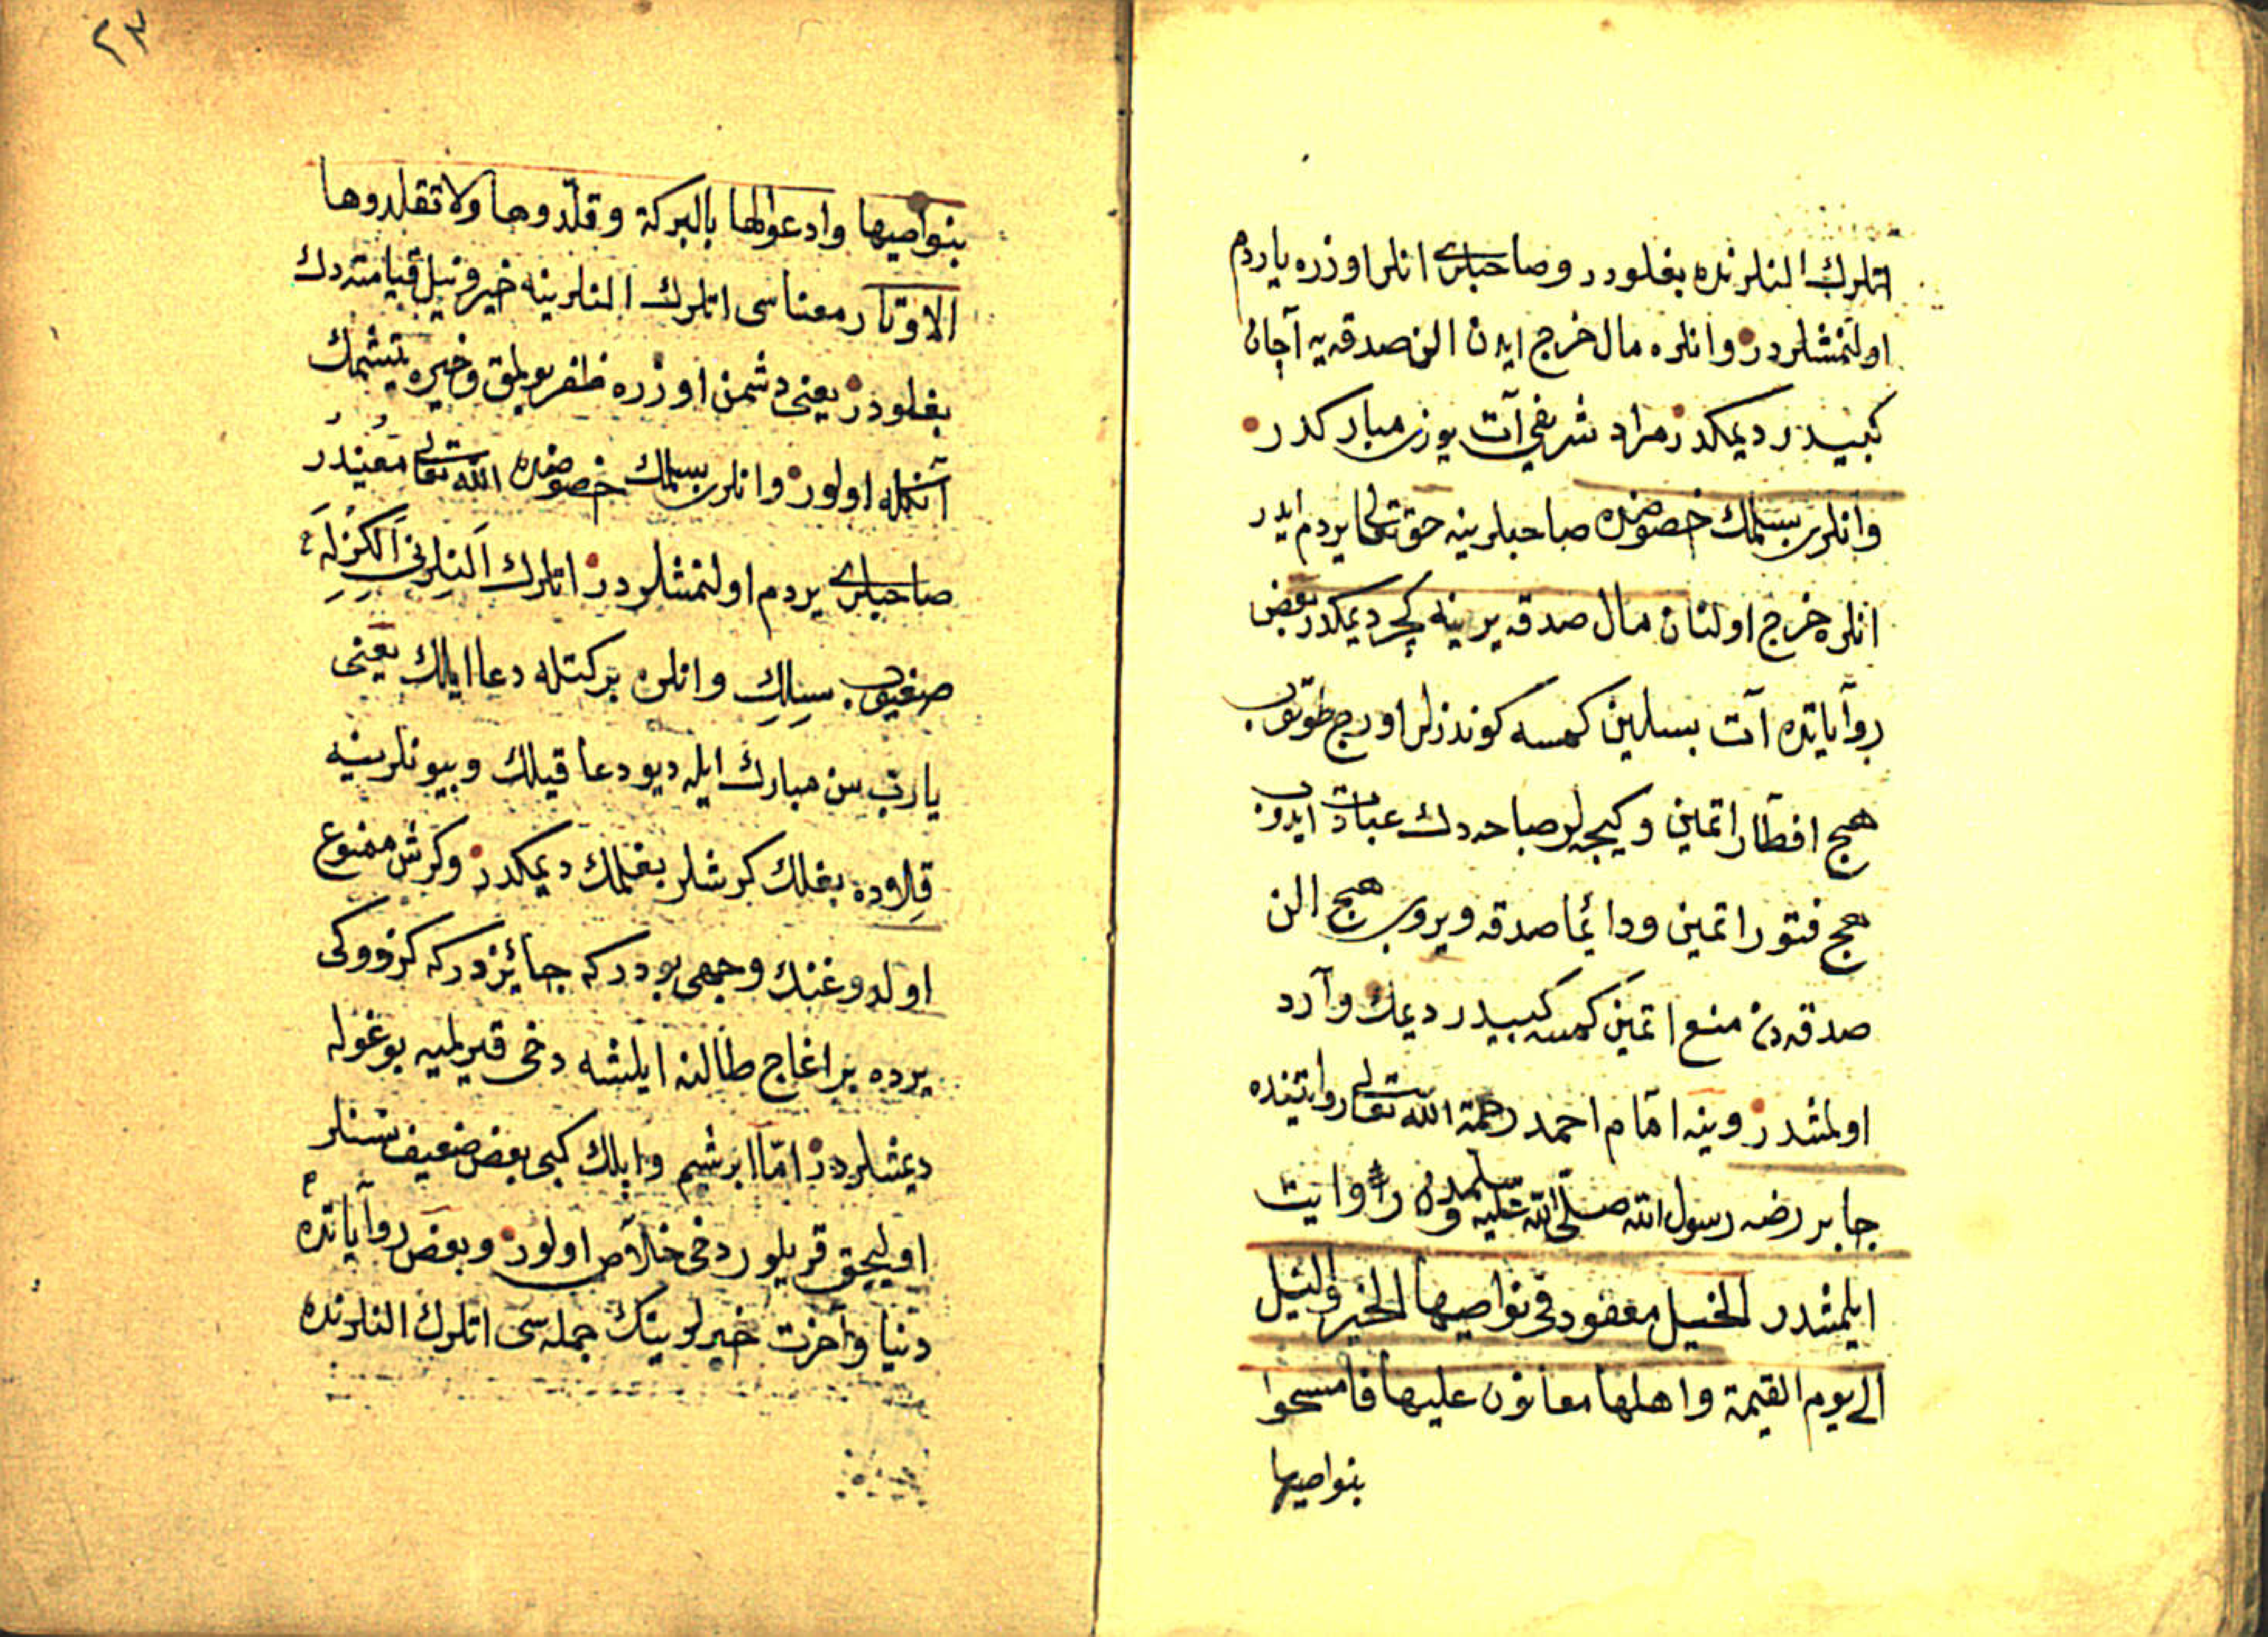 اتلرك النلرنده بغلودر وصاحبلری انلر اوزره یاردم
اولنمشلردر وانلره مال خرج ایدن الن صدقه یه آچان
كبیدر دیمكدر مراد شریفی آت یوزی مباركدر
وانلری بسلمك خصوصنده صاحبلرینه حق تعالی یردم ایدر
انلره خرج اولنان مال صدقه یرینه كچر دیمكدر بعض
روآیاتده آت بسلین كمسه كوندزلر اورج طوتوب
هیچ افطار اتمین وكیجه لر صباحه دك عبادت ایدوب
هیچ فتور اتمین ودائما صدقه ویروب هیچ الن
صدقه دن منع اتمین كمسه كبیدر دیمك وآرد
اولمشدر وینه امام احمد رحمة الله تعالی روایتنده
جابر رضه رسول الله صلی الله علیه وسلمدن روایت
ایلمشدر الخیل معقود فی نواصیها الخیر والنیل
الی یوم القیمة واهلها معانون علیها فامسحوا
بنواصیها
٢٣
بنواصیها وادعوا لها بالبركة وقلّدوها ولا تقلدوها
الاوتار معناسی اتلرك النلرینه خیر ونیل قیامته دك
بغلودر یعنی دشمن اوزره ظفر بولمق وخیره یتیشمك
آنكله اولور وانلری بسلمك خصوصنده الله تعالی معیندر
صاحبلری یردم اولنمشلردر اتلرك اَلنِلرنی اَلكزلَه
صغیوب سِیلِكِ وانلره بركتله دعا ایلك یعنی
یارب سن مبارك ایله دیو دعا قیلك وبیونلرینه
قِلاوده بغلك كرشلر بغلمك دیمكدر وكرش ممنوع
اولدوغنك وجهی بودركه جائزدركه كزدوكی
یرده بر اغاج طالنه ایلشه دخی قیریلمیه بوغوله
دیمشلردر امّا ابرشیم وایلك كبی بعض ضعیف نسنلر
اولیجق قریلور دخی خلآص اولور وبعض روآیاتده
دنیا وآخرت خیرلرینك جمله سی اتلرك النلرنده